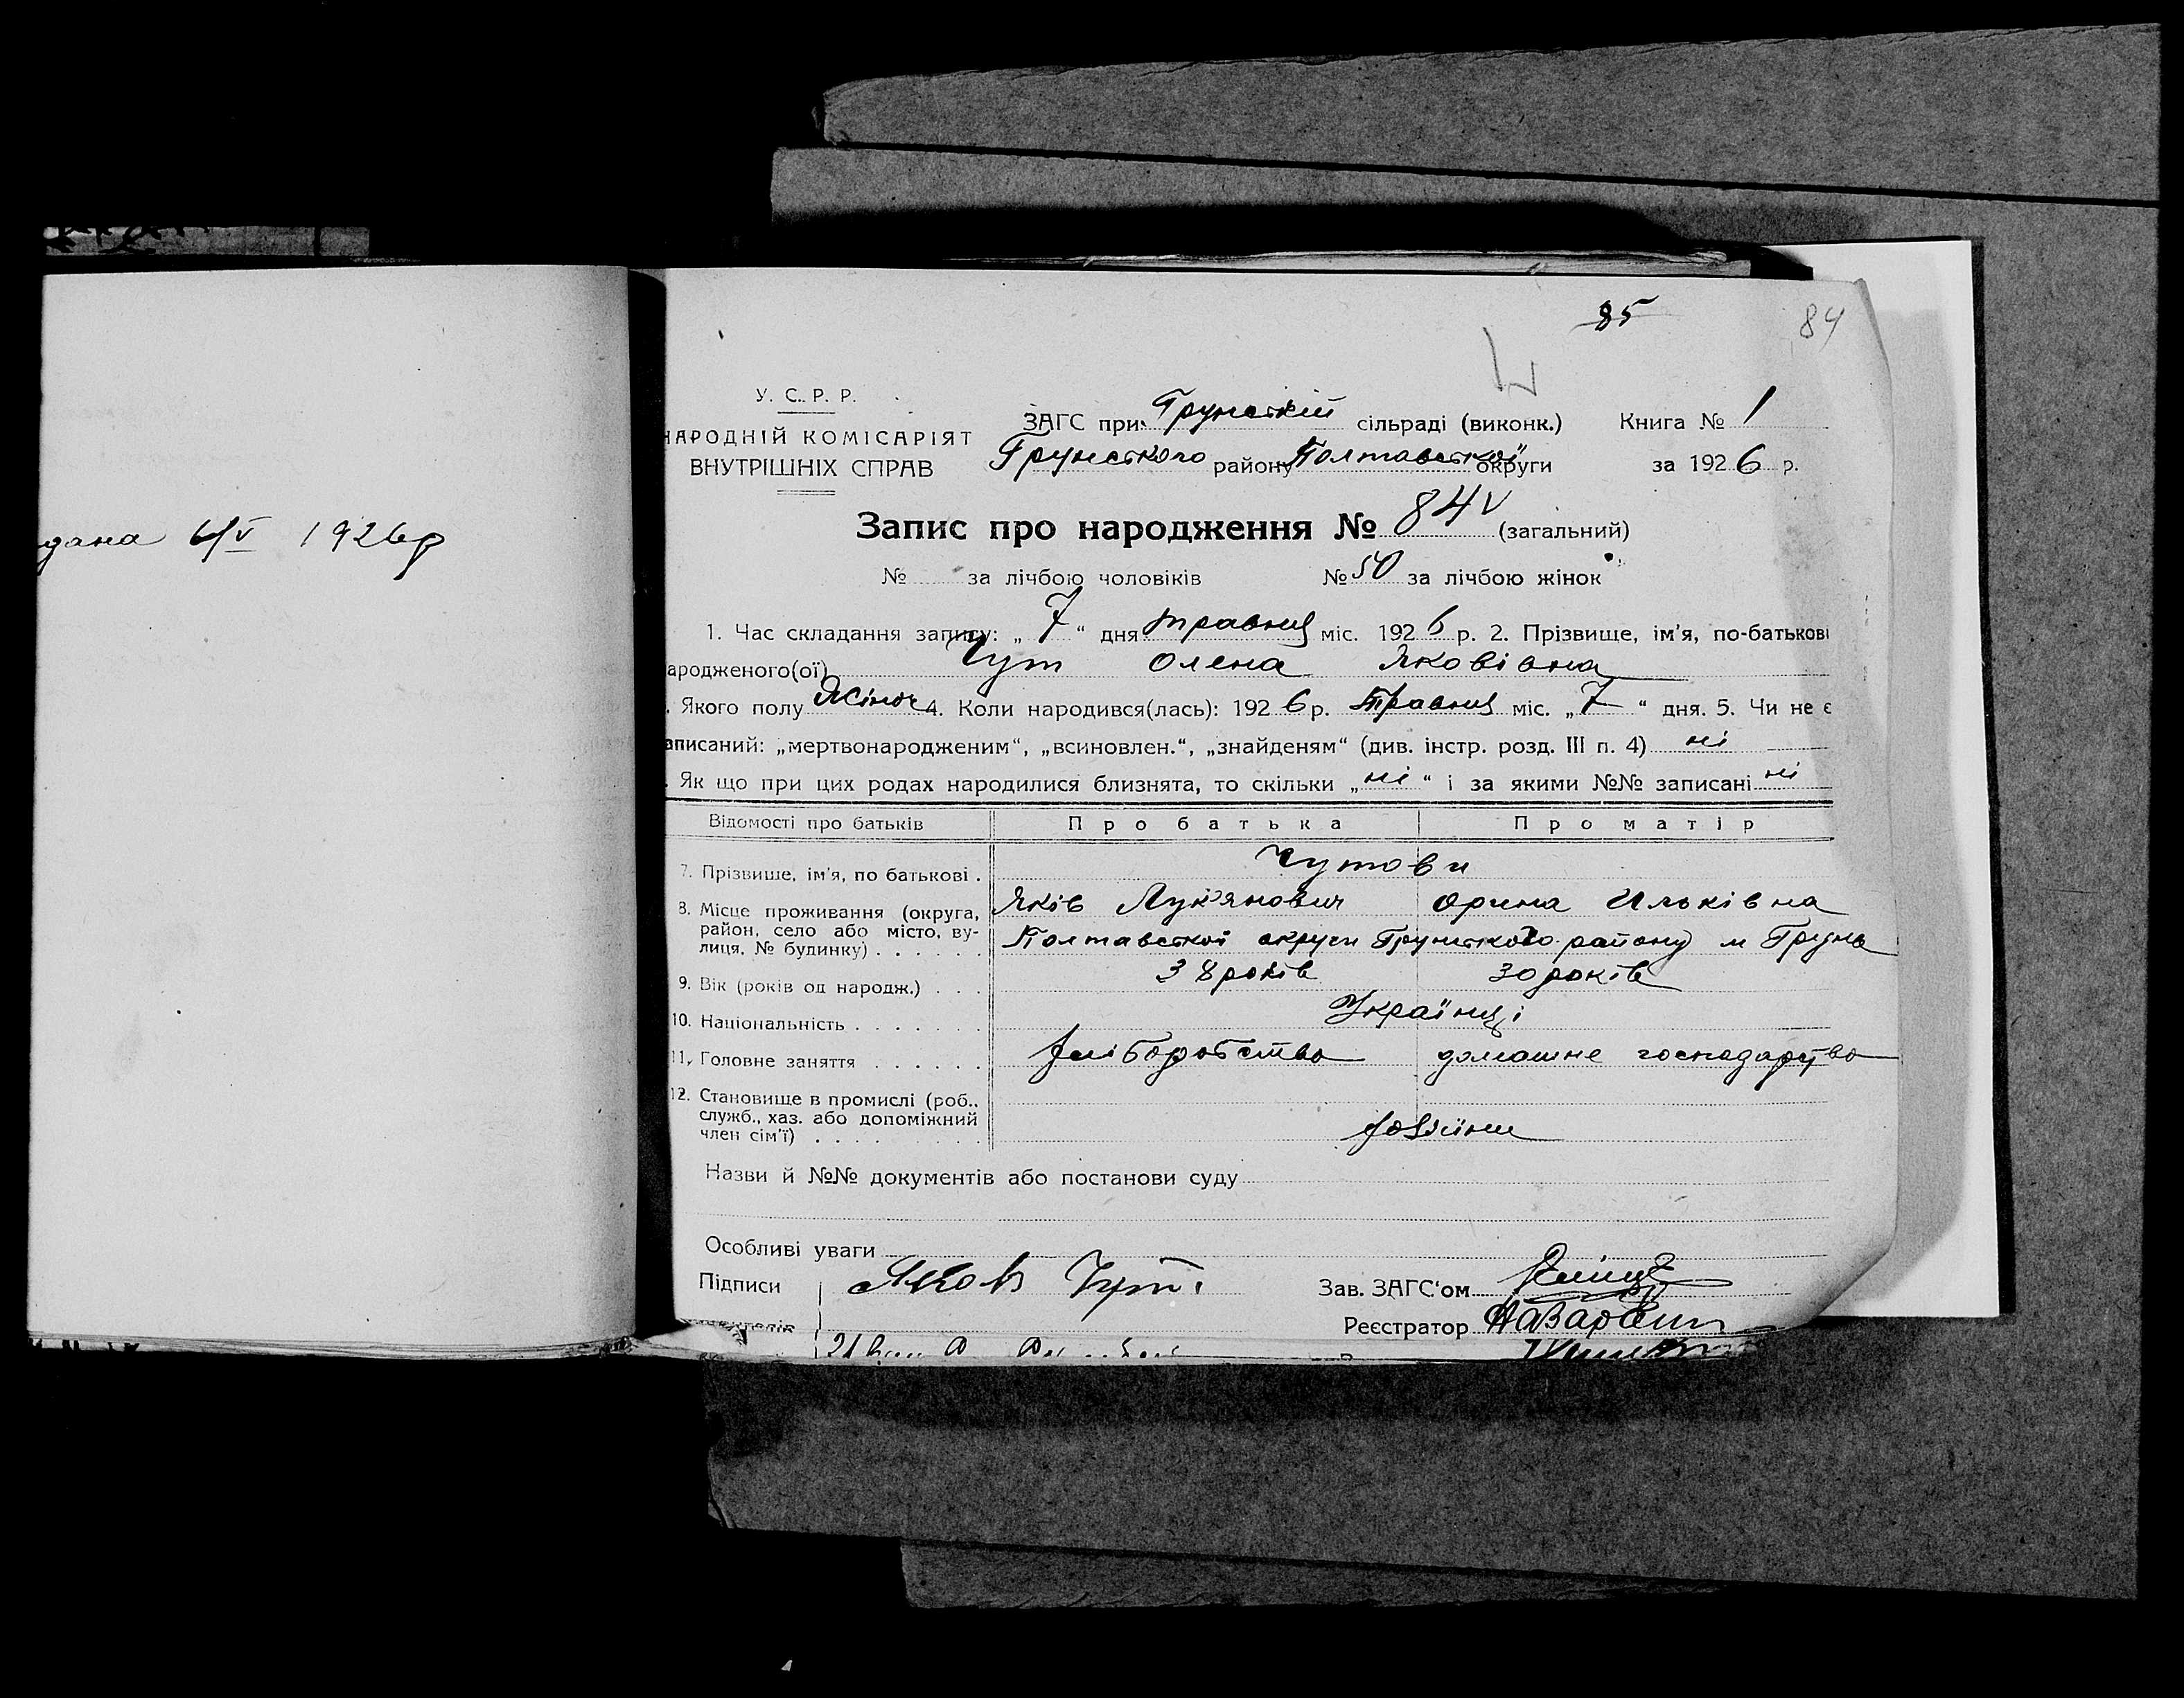 дана 6/V 1926р
85
84
У. С. Р. Р.
НАРОДНІЙ КОМІСАРІЯТ
ВНУТРІШНІХ СПРАВ
ЗАГС при Грунській сільраді (виконк.) Книга № 1
Грунського району Полтавської округи за 1926 р.
Запис про народження № 84 (загальний)
№ за лічбою чоловіків № 50 за лічбою жінок
1. Час складання запису: „ 7 “ дня травня міс. 1926 р. 2. Прізвище, ім'я, по-батькові
ародженого(ої) Чут Олена Яковівна
. Якого полу жіноч 4. Коли народився(лась): 1926 р. травня міс. „ 7 “ дня. 5. Чи не є
аписаний: „мертвонародженим“, „всиновлен.“, „знайденям“ (див. інстр. розд. III п. 4) ні
. Як що при цих родах народилися близнята, то скільки „ ні “ і за якими №№ записані ні
Відомості про батьків Про батька Про матір
7. Прізвище, ім'я, по батькові . Чутови
Яків Лук'янович Орина Ильківна
8. Місце проживання (округа,
район, село або місто, ву-
лиця, № будинку) . . . . . .
Полтавської округи Грунського району м Грунь
9. Вік (років од народж.) . . . 38 років 30 років
10. Національність . . . . . . . Українці
11. Головне заняття . . . . . . хліборобство домашне господарство
12. Становище в промислі (роб.,
служб., хаз. або допоміжний
член сім'ї) . . . . . . . . .
Назви й №№ документів або постанови суду
Особливі уваги
Підписи Яков Чут. Зав. ЗАГС'ом
Реєстратор